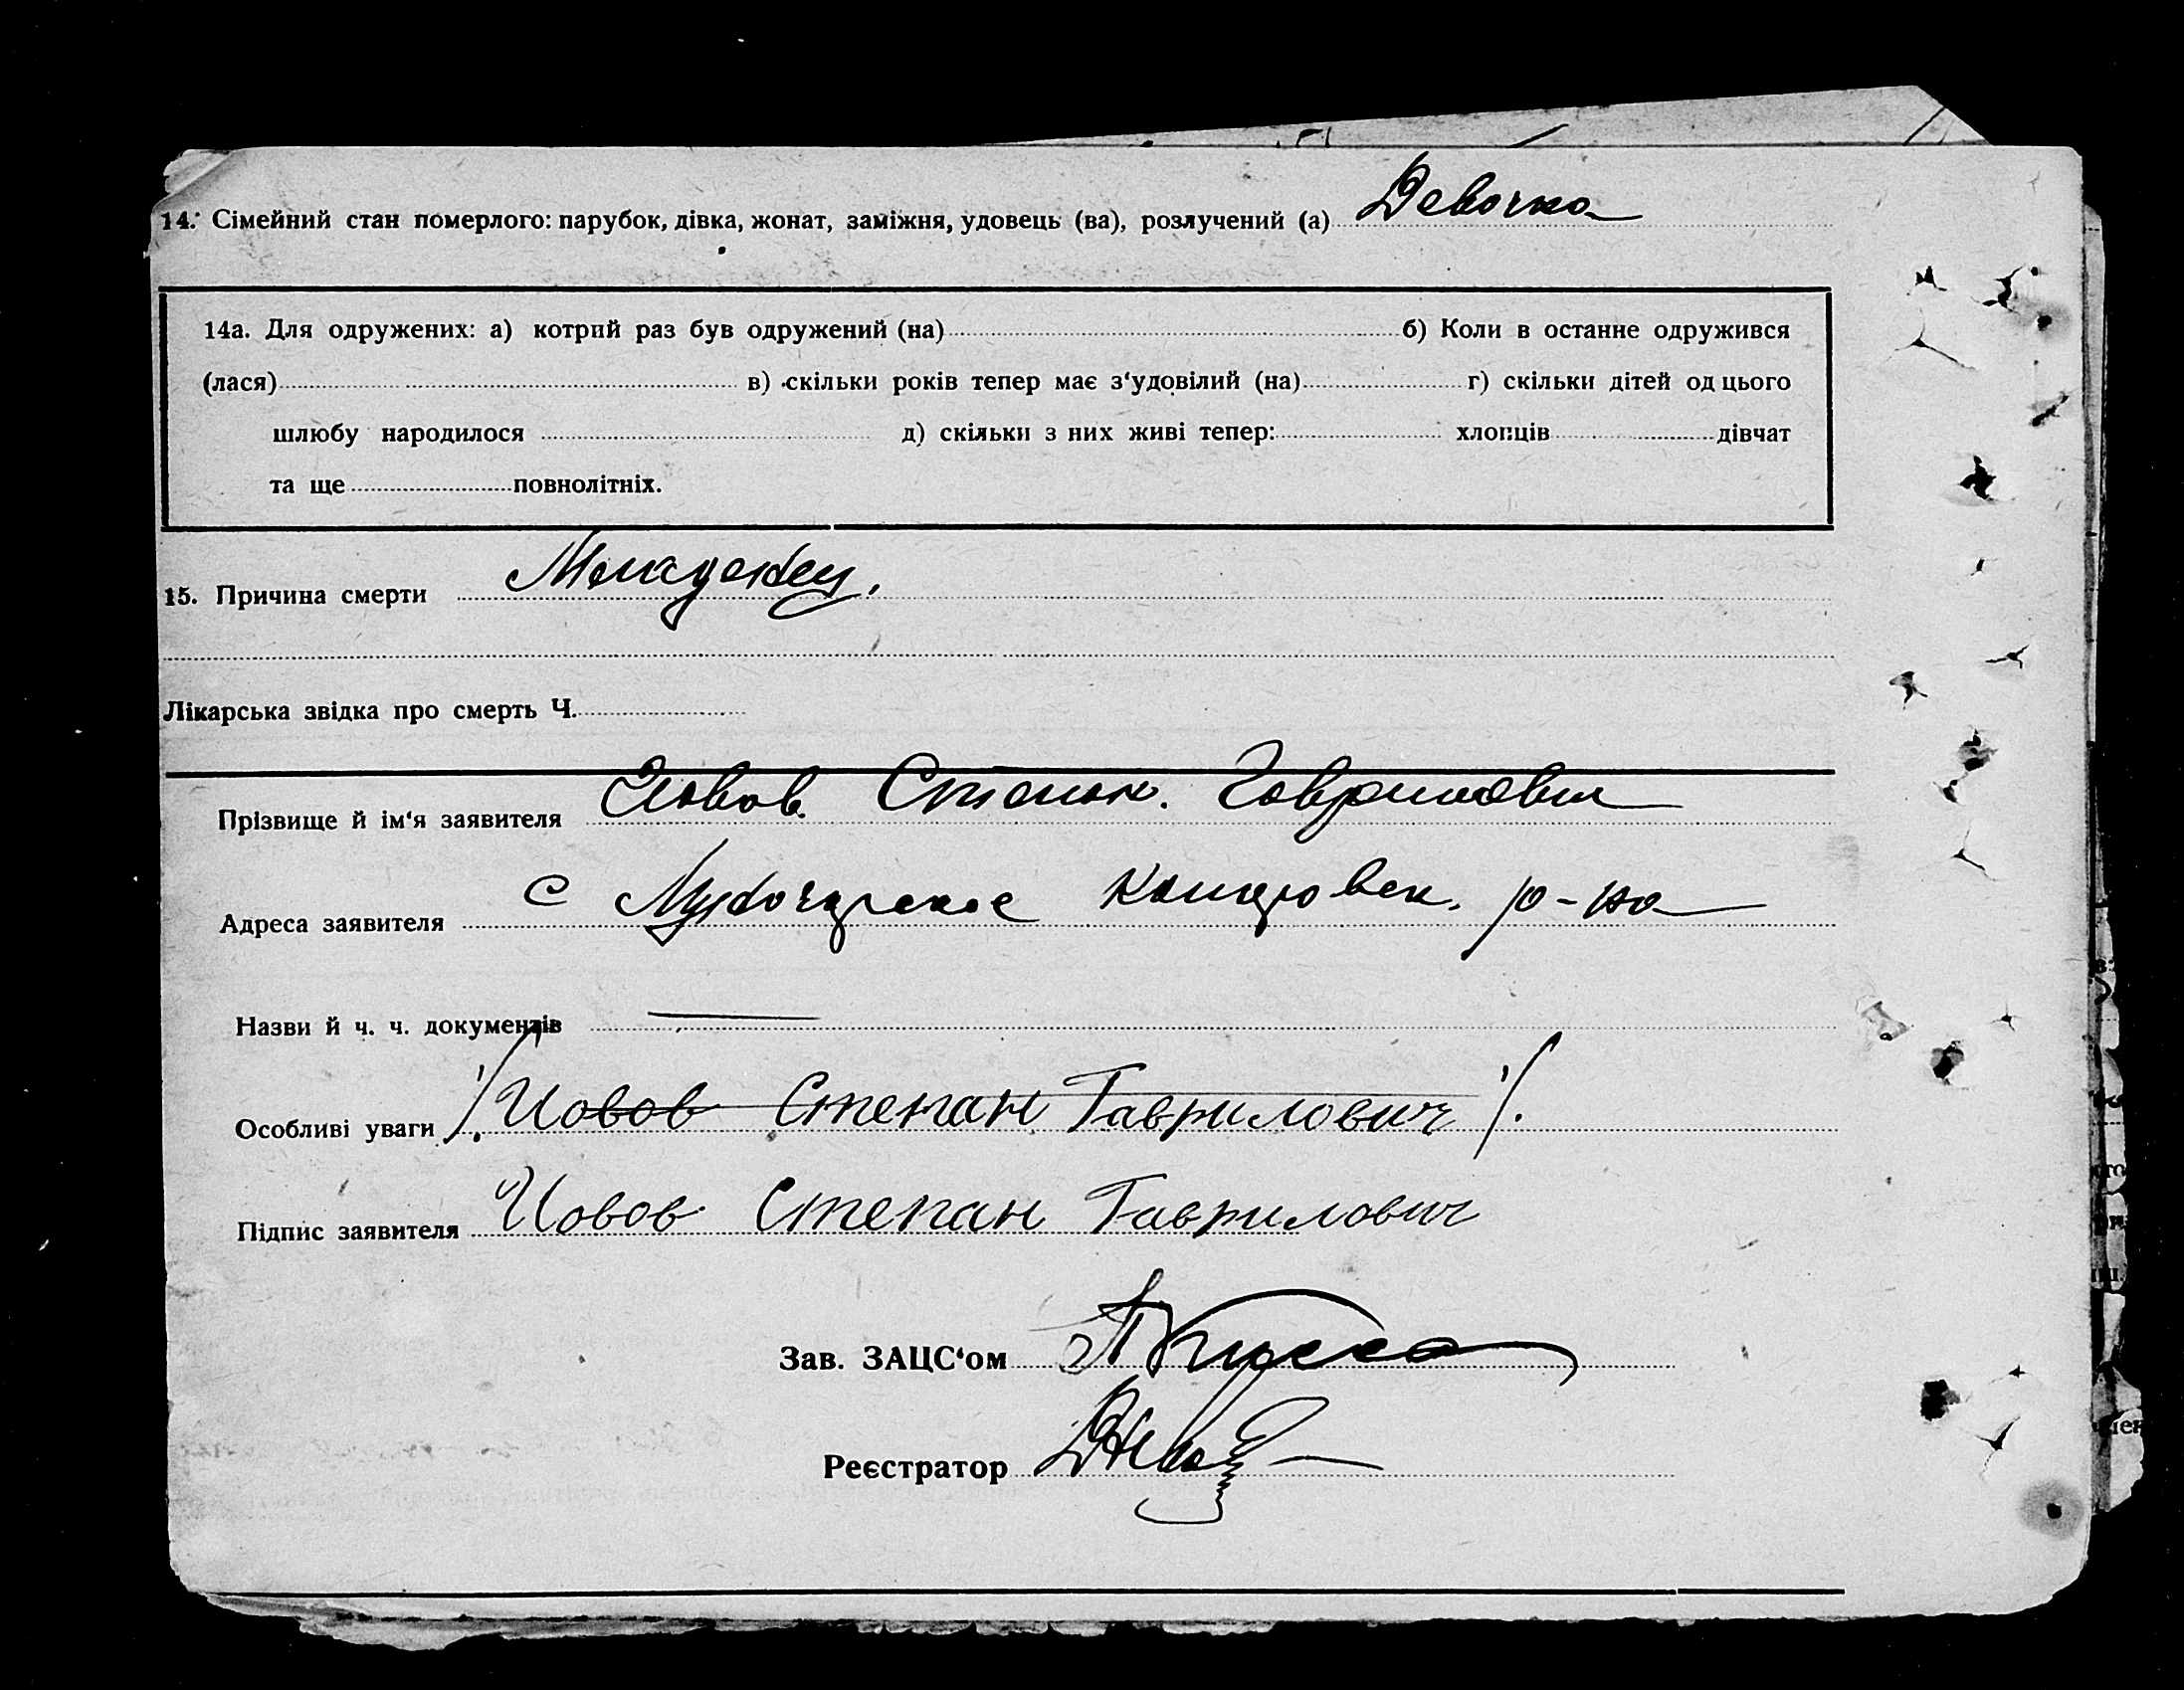 14. Сімейний стан померлого: парубок, дівка, жонат, заміжня, удовець (ва), розлучений (а) Девочка
14а. Для одружених: а) котрий раз був одружений (на) б) Коли в останне одружився
(лася) в) скільки років тепер має з‘удовілий (на) г) скільки дітей од цього
шлюбу народилося д) скільки з них живі тепер: хлопців дівчат
та ще повнолітніх.
15. Причина смерти Младенец.
Лікарська звідка про смерть Ч.
Прізвище й ім‘я заявителя Иовов Степан. Гаврилович
Адреса заявителя с р-на
Назви й ч. ч. документів —
Особливі уваги /Иовов Степан Гаврилович/.
Підпис заявителя Иовов Степан Гаврилович
Зав. ЗАЦС‘ом
Реєстратор